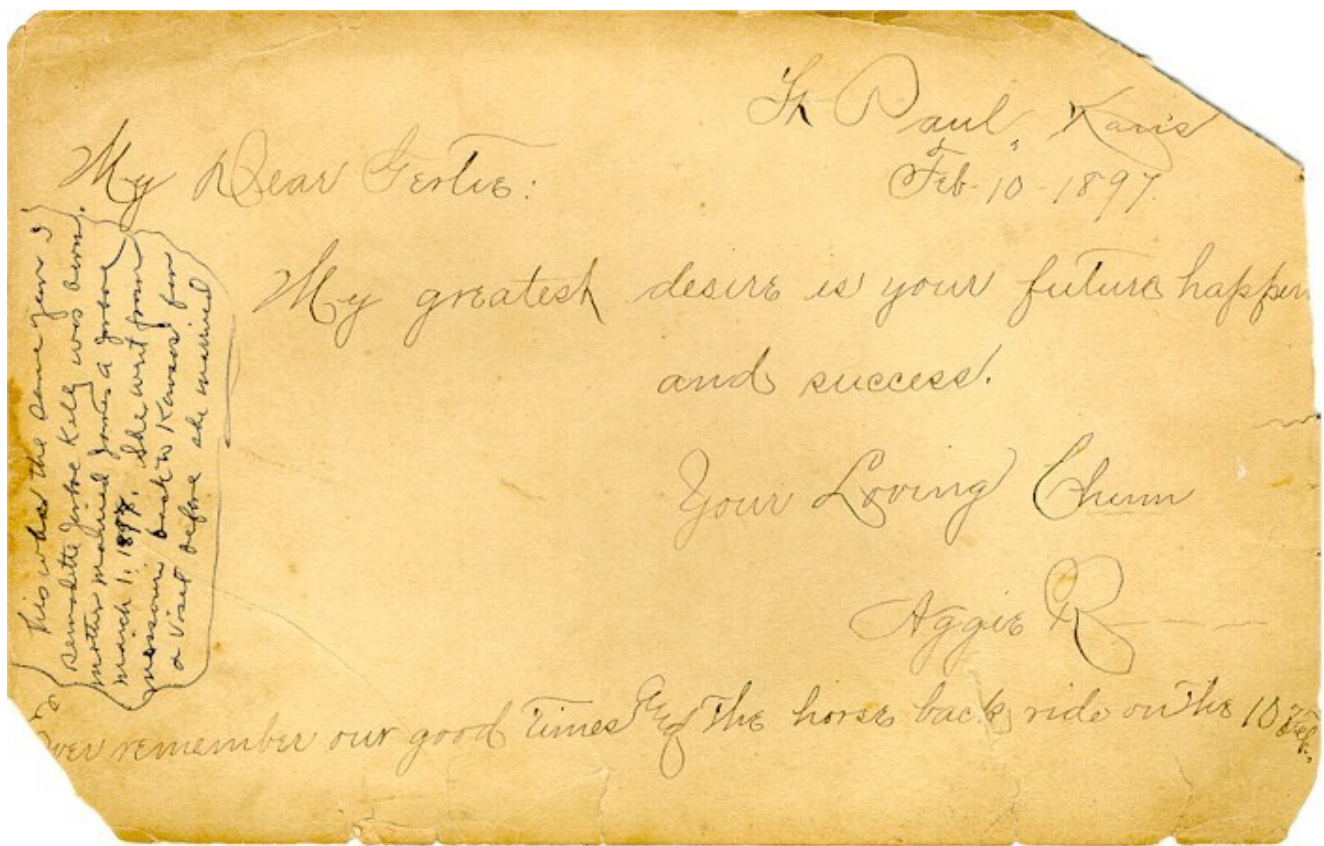 St Paul, Kans
Feb-10-1897.
My Dear Gertie:
My greatest desire is your future happin
and success.
Your Loving Chum
Aggie R
Ever remember our good times & the horse back ride on the 10 Feb.
This was the same year I
Bernadette Jerbre Kelly was born.
mother married James a
march 1, 1897. She went from
missouri back to Kansas for
a visit before she married